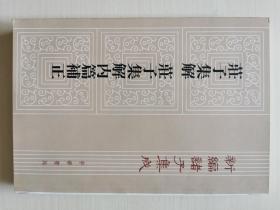 莊子集解 莊子集解內篇補正
新編諸子集成
中華書局